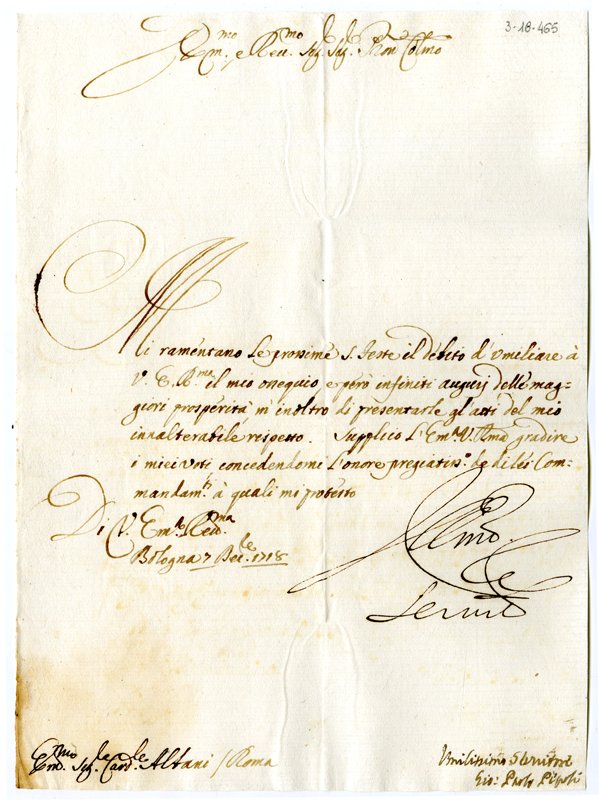 3-18-465
Em.mo e Rev.mo Sig.r Sig.r Pron Colmo
Mi ramentano le prossime S. Feste il débito d'umiliare à
V. E. R.ma il mio ossequio, e però infiniti augurij delle mag=
giori prosperità m'inoltro di presentarle gl'atti del mio
innalterabile rispetto. Supplico L'Em.a V. R.ma gradire
i miei voti concedendomi l'onore pregiatis.o de di lei Com=
mandam.ti à quali mi protesto
Di V. Em.a Rev.ma
Bologna 7 Dec.bre 1718
Servit
Em.mo Sig.r Card.le Albani / Roma
Umilissimo Servitore
Gio: Paolo Pepoli